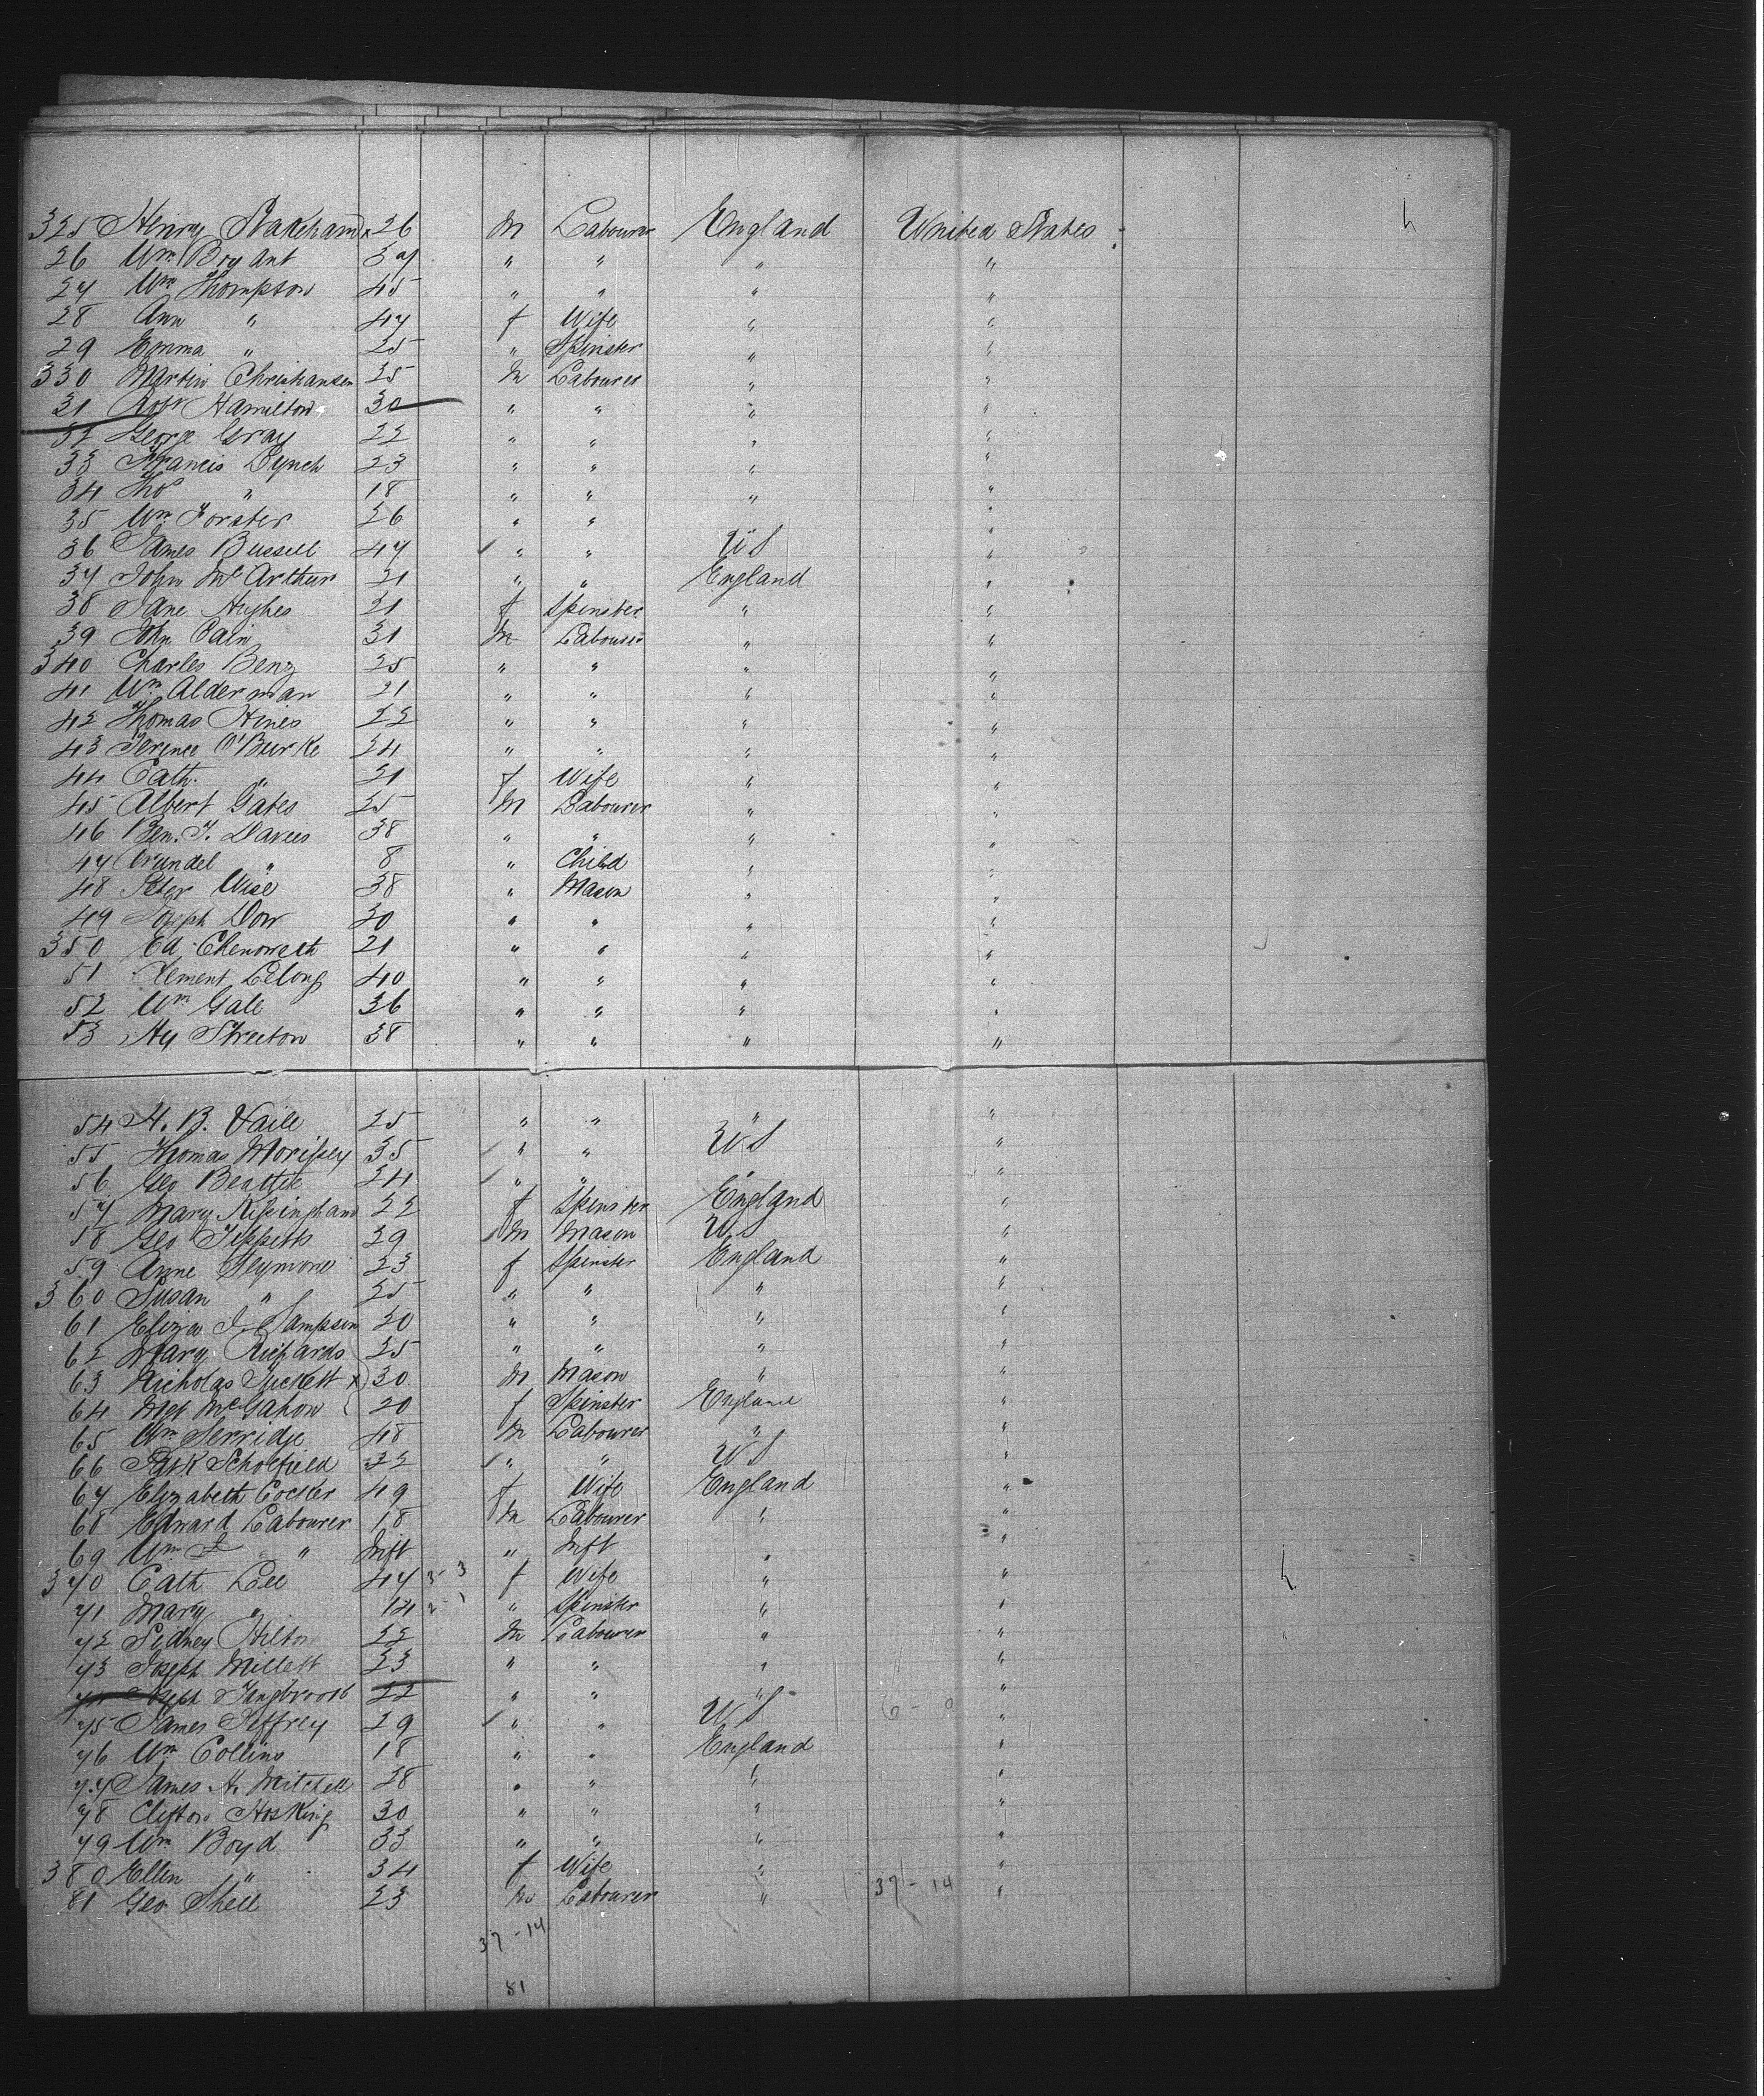 325 Henry Stakeham 26 M Labourer England United States
26 Wm Bryant 39 " " " "
27 Wm Thompson 45 " " " "
28 Ann " 47 f Wife " "
29 Emma " 25 " Spinster " "
330 Martin Christiansen 25 M Labourer " "
31 Robt Hamilton 30 " " " "
32 George Gray 22 " " " "
33 Francis Lynch 23 " " " "
34 Tho " 18 " " " "
35 Wm Forster 26 " " " "
36 James Bussell 47 " " US "
37 John McArthur 21 " " England "
38 Jane Hughes 21 f Spinster " "
39 John Cain 31 M Labourer " "
340 Charles Benz 25 " " " "
41 Wm Alderman 21 " " " "
42 Thomas Hines 22 " " " "
43 Terence O'Burke 24 " " " "
44 Cath. " 21 f Wife " "
45 Albert Gates 25 M Labourer " "
46 Ben. T. Davies 38 " " " "
47 Arundel " 8 " Child " "
48 Peter Wise 38 " Mason " "
49 Joseph Dow 30 " " " "
350 Ed. Chenoweth 21 " " " "
51 Clement Lelong 40 " " " "
52 Wm Gale 36 " " " "
53 Hy Streeton 38 " " " "
54 H. B. Vaile 25 " " " "
55 Thomas Morissey 35 " " US "
56 Geo Beattie 24 " " " "
57 Mary Kissingham 22 f Spinster England "
58 Geo Tippitts 29 M Mason US "
59 Anne Seymour 23 f Spinster England "
360 Susan " 25 " " " "
61 Eliza J. Sampson 20 " " " "
62 Mary Richards 25 " " " "
63 Nicholas Tuckett x 30 M Mason " "
64 Mgt McGahon 20 f Spinster England "
65 Wm Serridge 48 M Labourer " "
66 Patk Scholfield 32 " " US "
67 Elizabeth Cocker 49 f Wife England "
68 Edward Labourer 18 M Labourer " "
69 Wm " Inft " Inft " "
370 Cath Lee 47 3 - 3 f Wife " "
71 Mary " 14 2 - 1 " Spinster " "
72 Sidney Hilton 22 M Labourer " "
73 Joseph Millett 23 " " " "
74 Joseph 22 " " " "
75 James Jeffrey 29 " " US 6 - 0 "
76 Wm Collins 18 " " England "
77 James H. Mitchell 28 " " " "
78 Clifton Hosking 30 " " " "
79 Wm Boyd 33 " " " "
380 Ellen " 34 f Wife " "
81 Geo Shell 23 M Labourer " 37 - 14 "
37 - 14
81